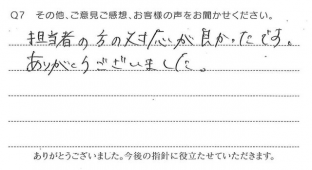 Q7 その他、ご意見ご感想、お客様の声をお聞かせください。
担当者の方の対応が良かったです。
ありがとうございました。
ありがとうございました。今後の指針に役立たせていただきます。